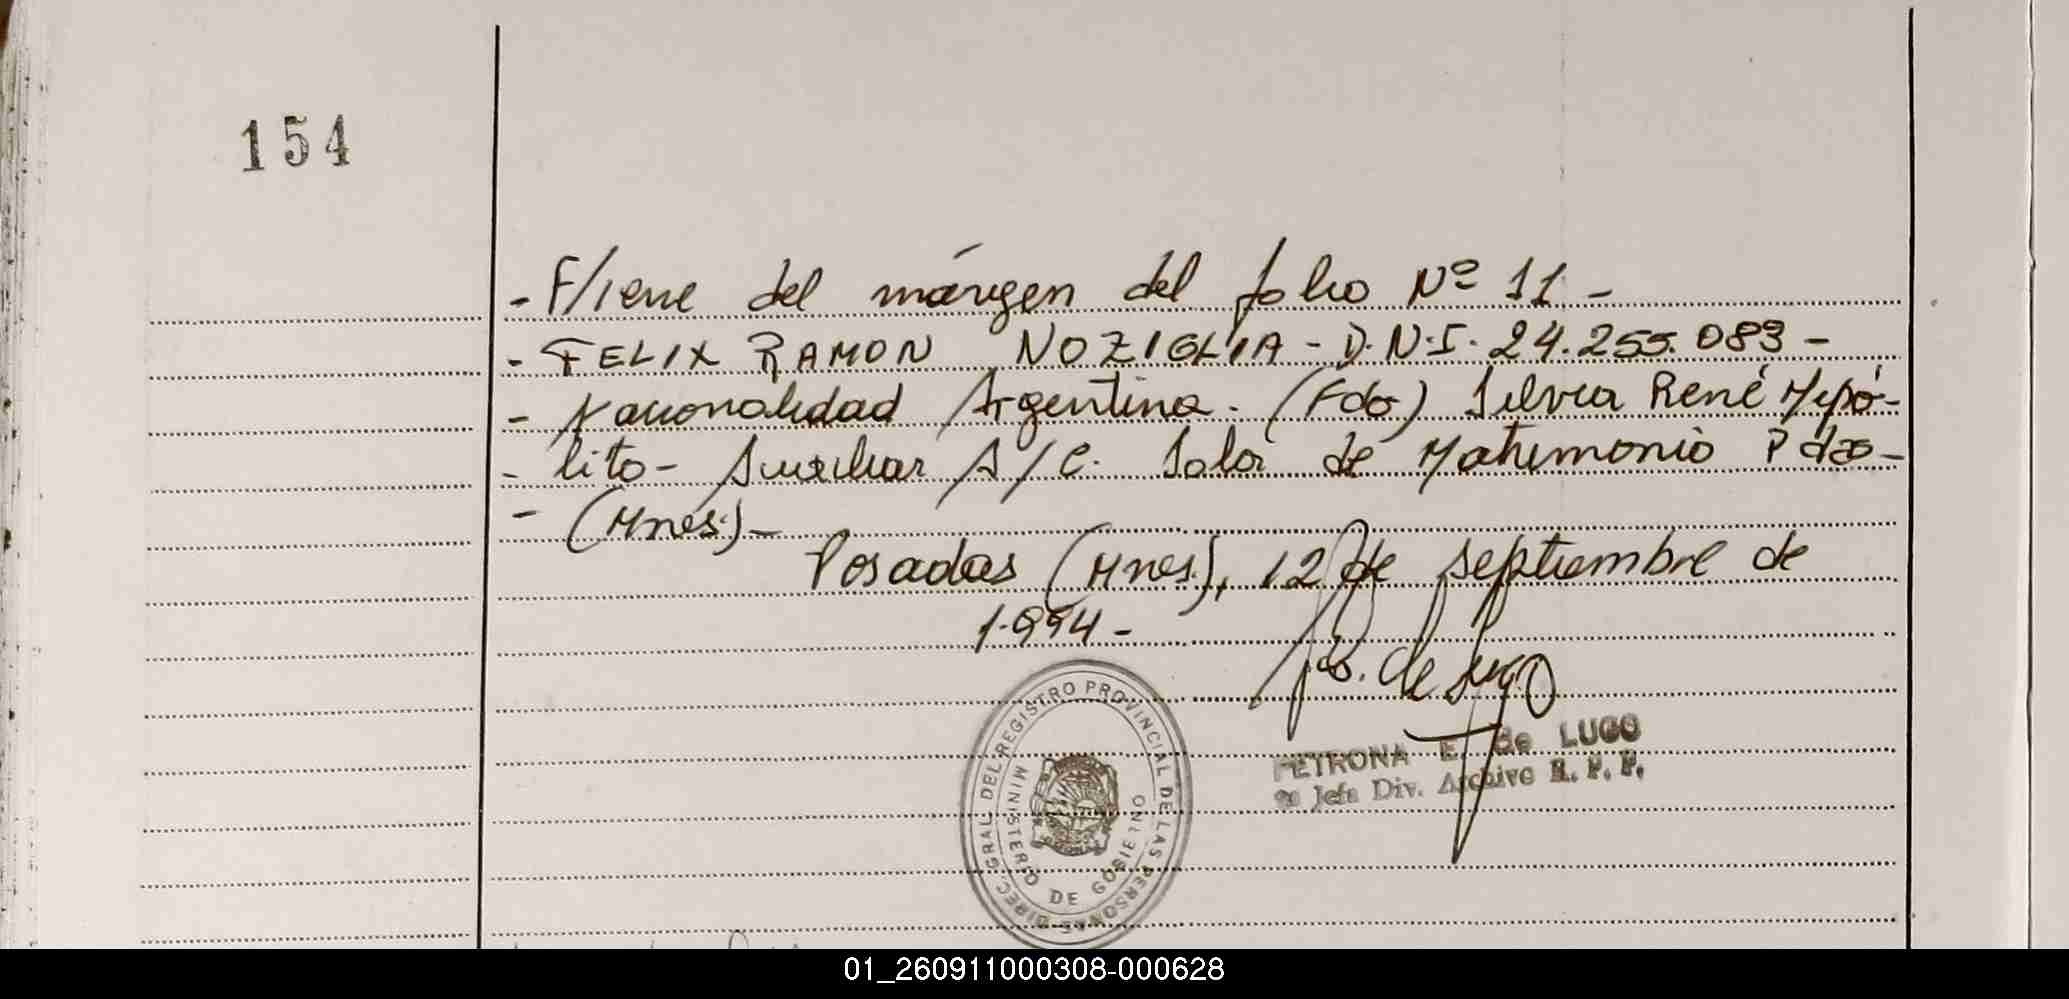 154
- F/iene del márgen del folio Nº 11 -
- FELIX RAMON NOZIGLIA - D.N.I. 24.255.083 -
- Nacionalidad Argentina. (Fdo) Silvia René Hipó-
- lito - Auxiliar A/C. Sala de Matrimonio Pdas -
- (Mnes.) -
Posadas (Mnes), 12 de septiembre de
1.994 -
de Lugo
PETRONA E. de LUGO
Jefa Div. Archivo R. P. P.
DIREC. GRAL DEL REGISTRO PROVINCIAL DE LAS PERSONAS
MINISTERIO DE GOBIERNO
01_260911000308-000628